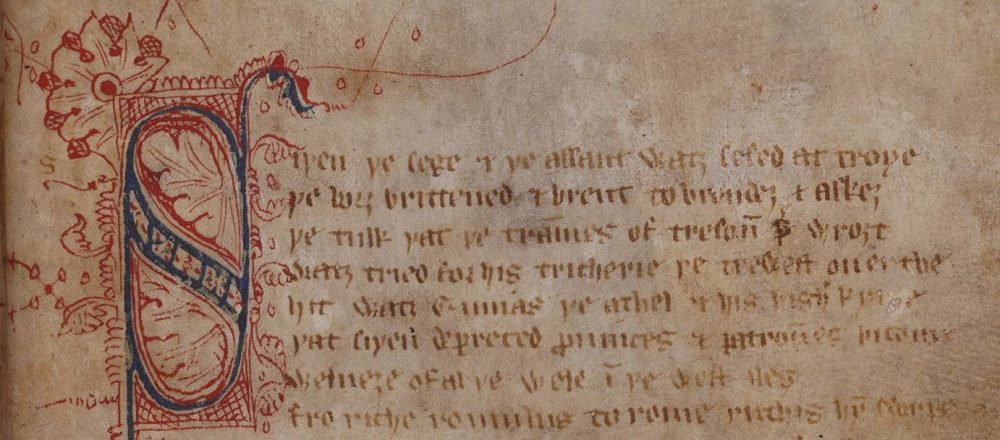 Siþen þe sege & þe assaut watz sesed at troye
þe borȝ brittened & brent to brondeȝ & askez
þe tulk þat þe trāmes of tresoū þ̉ wroȝt
watz tried for his tricherie þe trewest on erthe
hit watz Ennias þe athel & his highe kynde
þat siþen depreced prouinces & patroūes bicome
welneȝe of al þe wele ī þe west iles
fro riche romulus to rome ricchis hȳ swyþe